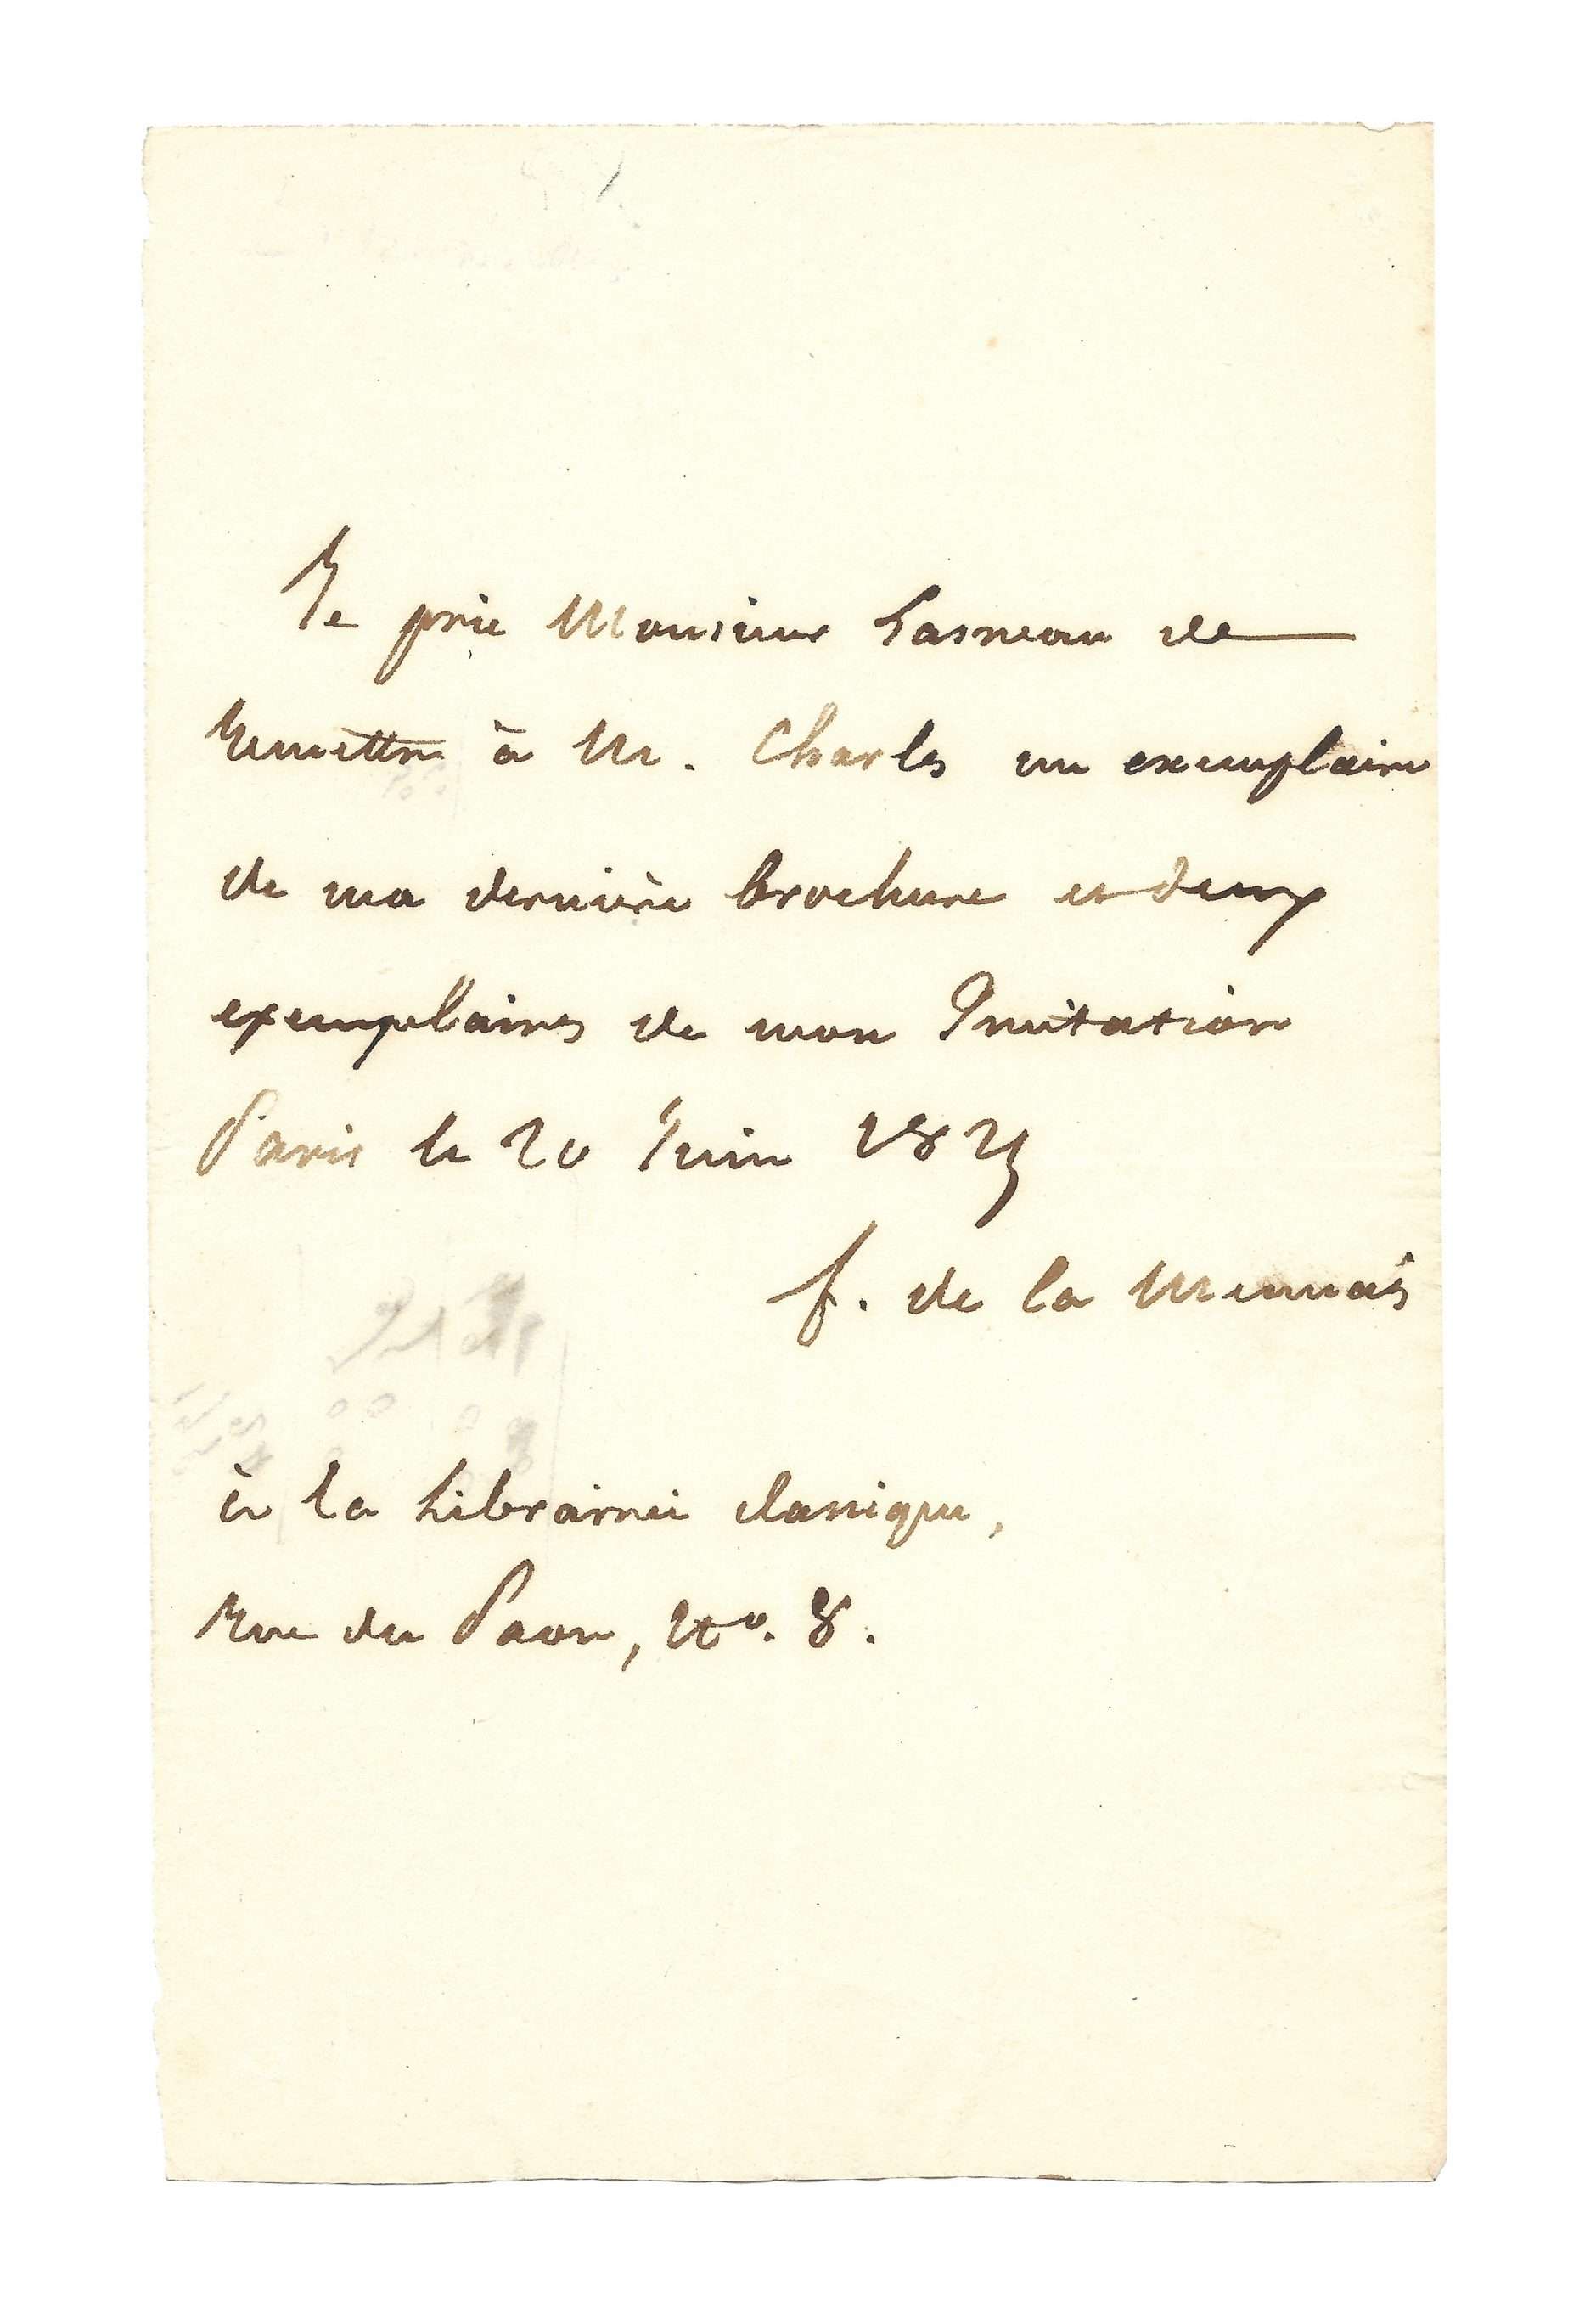 Je prie Monsieur Lasneau de
remettre à M. Charles un exemplaire
de ma dernière brochure et deux
exemplaires de mon Imitation
Paris le 20 Juin 1825
f. de la Mennais
à la Librairie classique,
rue du Paon, No. 8.